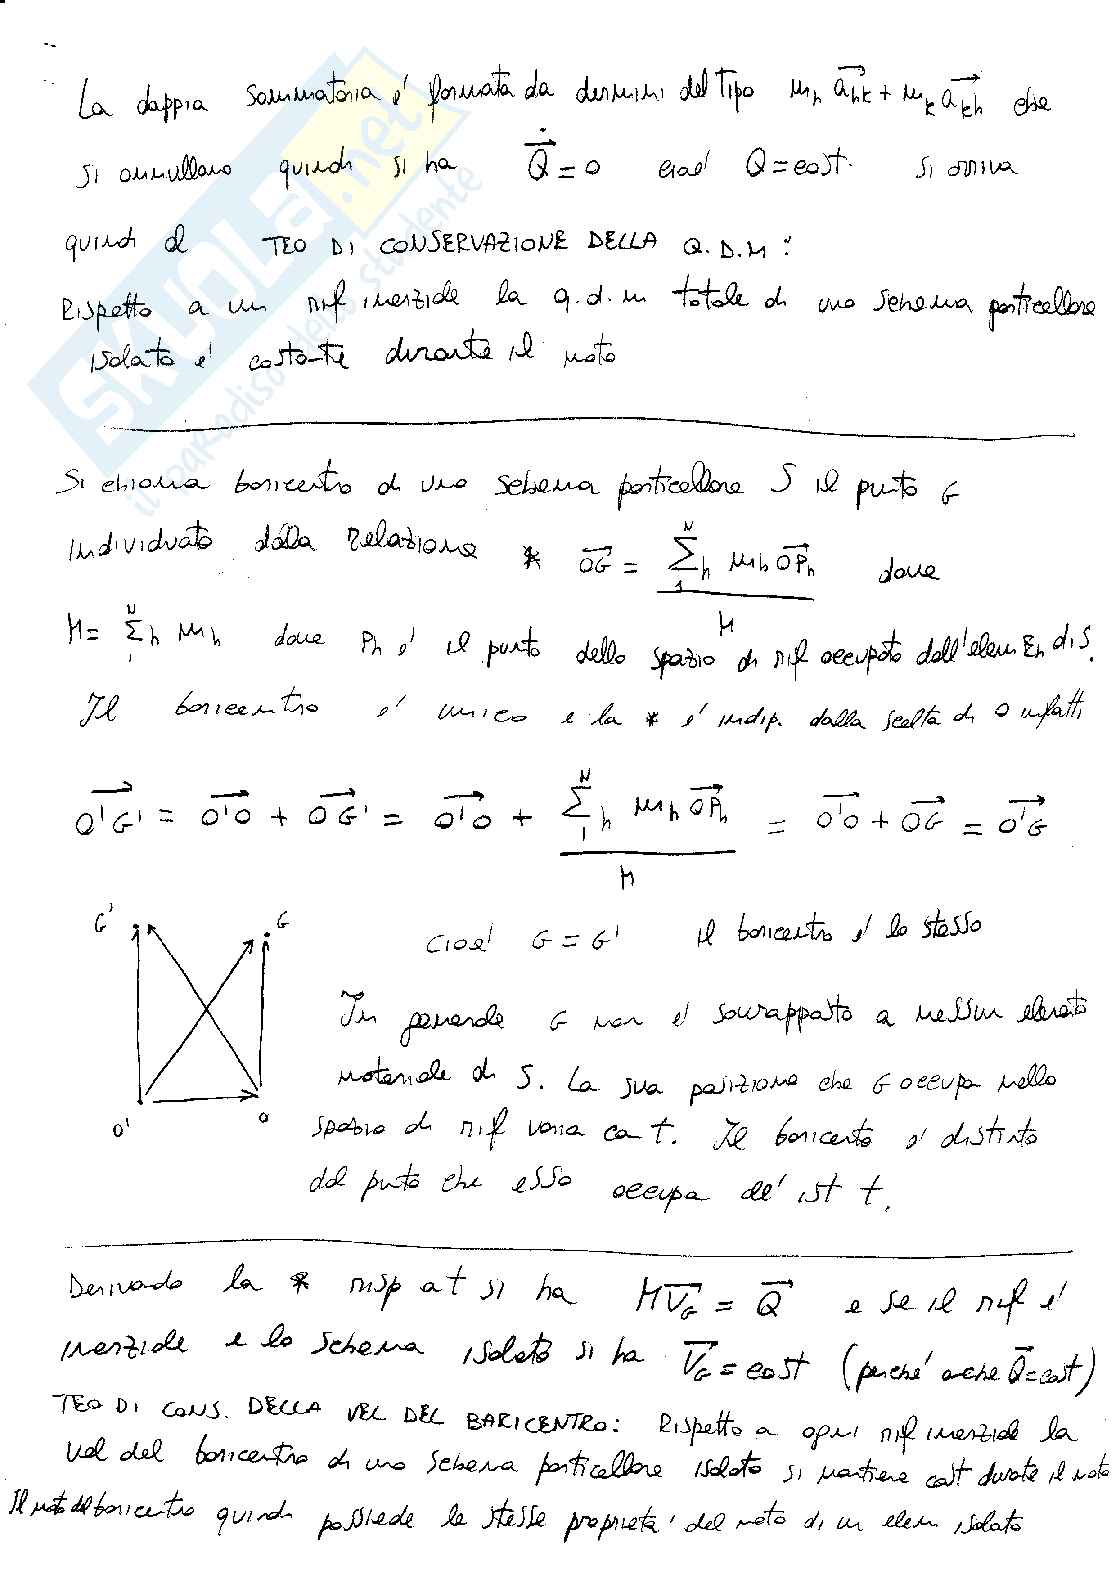 La doppia sommatoria e' formata da termini del tipo m_h a_hk + m_k a_kh che
si annullano quindi si ha Q̇ = 0 cioe' Q = cost. si arriva
quindi al TEO DI CONSERVAZIONE DELLA Q.D.M:
Rispetto a un rif inerziale la q.d.m totale di uno schema particellare
isolato e' costante durante il moto
Si chiama baricentro di uno schema particellare S il punto G
individuato dalla relazione * OG = Σ_h m_h OP_h / M dove
M = Σ_h m_h dove P_h e' il punto dello spazio di rif occupato dall'elem E_h di S.
Il baricentro e' unico e la * e' indip. dalla scelta di O infatti
O'G' = O'O + OG' = O'O + Σ_h m_h OP_h / M = O'O + OG = O'G
G' G
Cioe' G = G' il baricentro e' lo stesso
In generale G non e' sovrapposto a nessun elemento
materiale di S. La sua posizione che G occupa nello
spazio di rif varia con t. Il baricentro e' distinto
O' O
dal punto che esso occupa all' ist t.
Derivando la * risp a t si ha M V_G = Q e se il rif e'
inerziale e lo schema isolato si ha V_G = cost (perché anche Q = cost)
TEO DI CONS. DELLA VEL DEL BARICENTRO: Rispetto a ogni rif inerziale la
vel del baricentro di uno schema particellare isolato si mantiene cost durante il moto
Il moto del baricentro quindi possiede le stesse proprieta' del moto di un elem isolato
SKUOLA.net
il paradiso dello studente